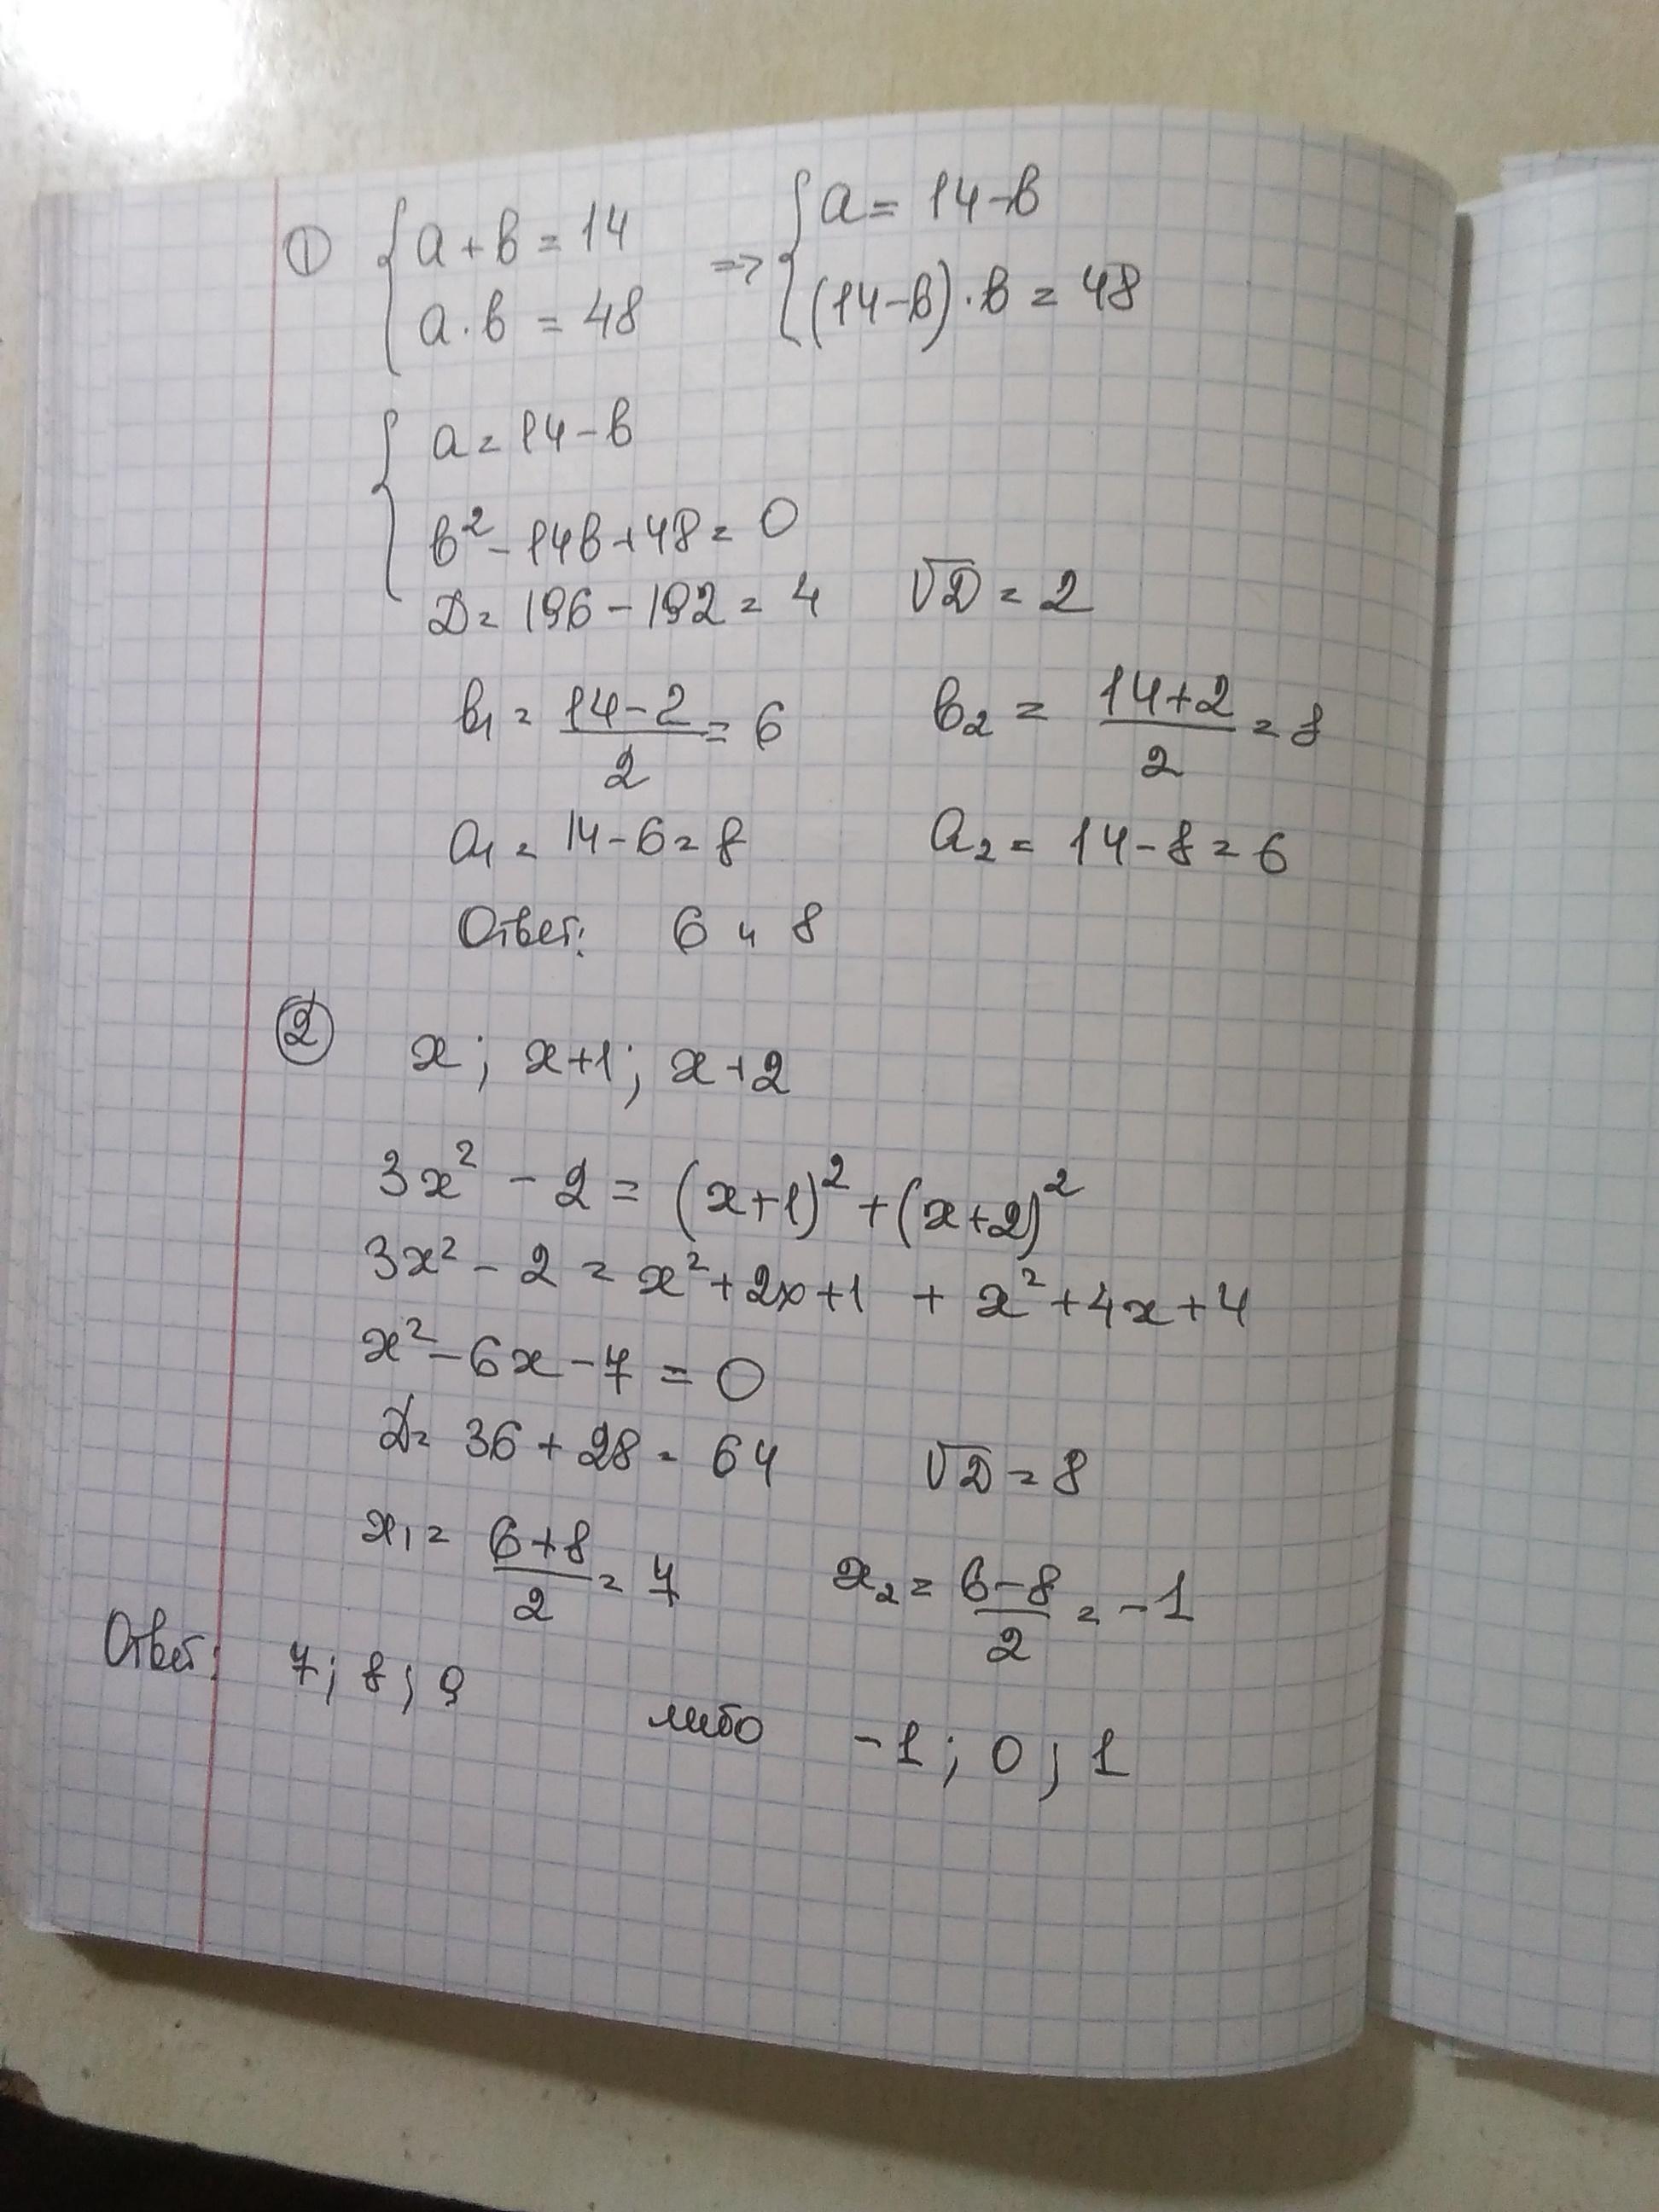 ① { a + b = 14 => { a = 14 - b
a · b = 48 (14 - b) · b = 48
{ a = 14 - b
b² - 14b + 48 = 0
D = 196 - 192 = 4 √D = 2
b₁ = (14 - 2)/2 = 6 b₂ = (14 + 2)/2 = 8
a₁ = 14 - 6 = 8 a₂ = 14 - 8 = 6
Ответ: 6 и 8
② x; x+1; x+2
3x² - 2 = (x+1)² + (x+2)²
3x² - 2 = x² + 2x + 1 + x² + 4x + 4
x² - 6x - 7 = 0
D = 36 + 28 = 64 √D = 8
x₁ = (6+8)/2 = 7 x₂ = (6-8)/2 = -1
Ответ: 7; 8; 9 либо -1; 0; 1